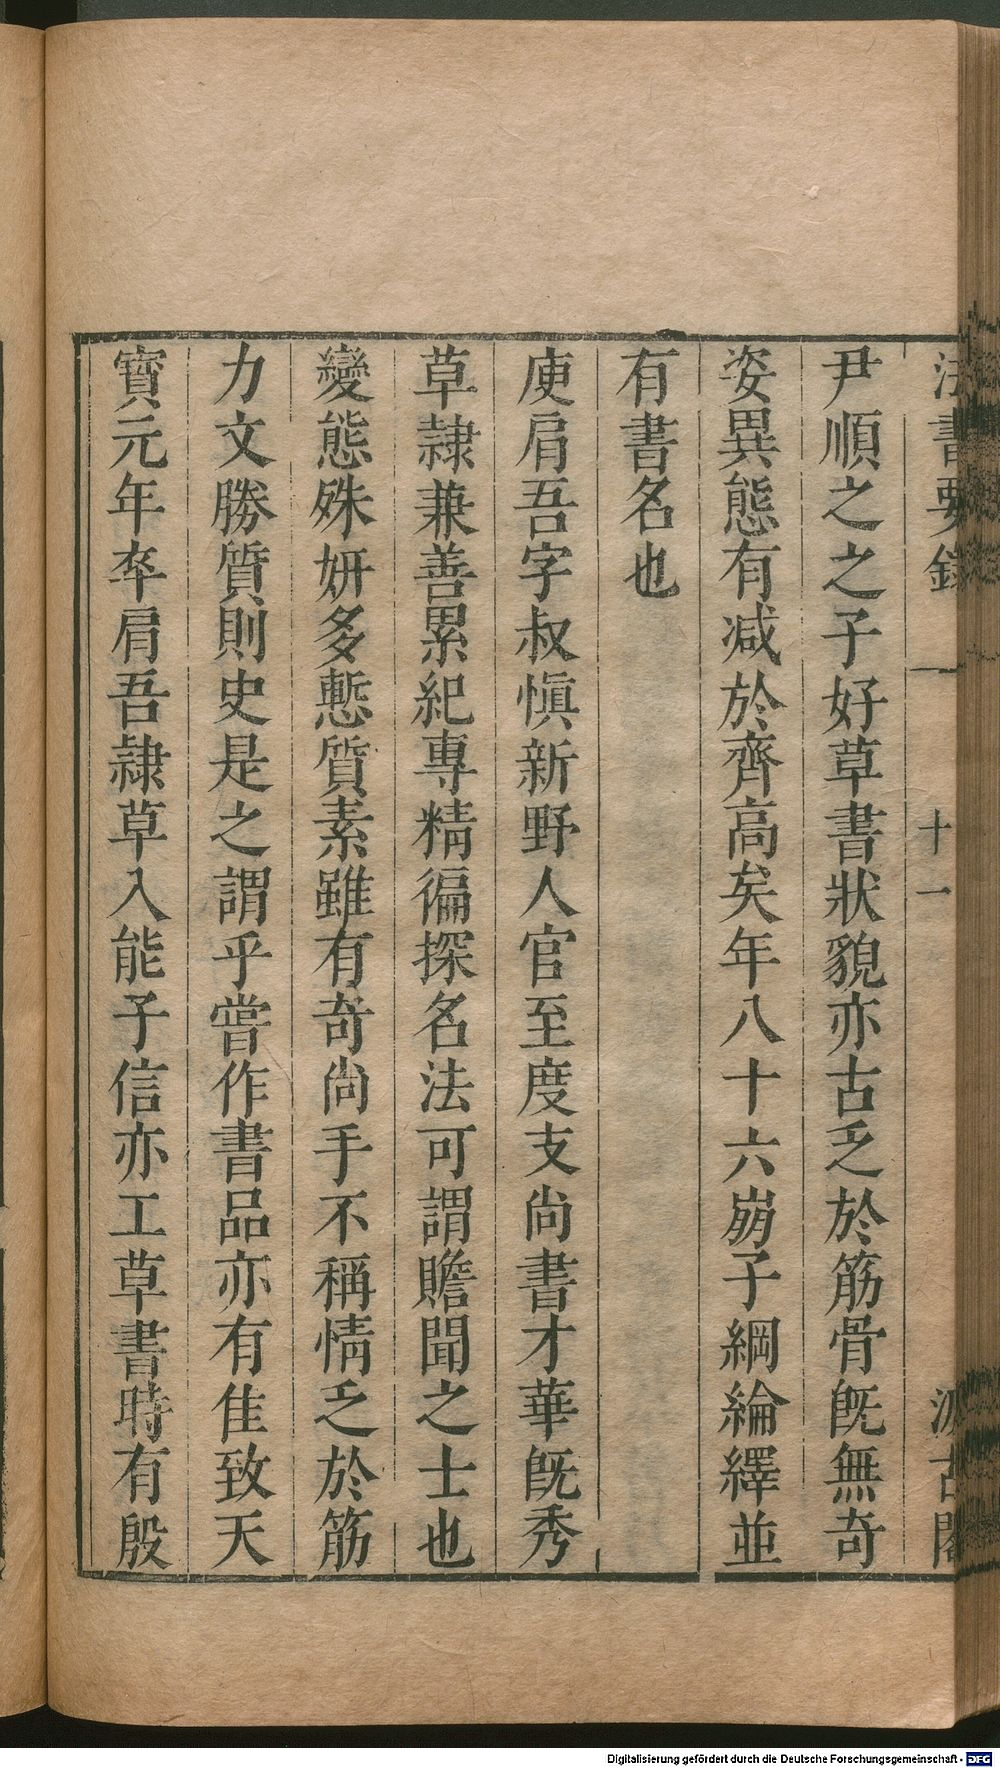 法書要錄 一 十一 汲古閣
尹順之之子好草書狀貌亦古乏於筋骨旣無奇
姿異態有减於齊高矣年八十六崩子綱綸繹並
有書名也
庾肩吾字叔愼新野人官至度支尙書才華旣秀
草隸兼善累紀專精徧探名法可謂贍聞之士也
變態殊妍多慙質素雖有奇尙手不稱情乏於筋
力文勝質則史是之謂乎嘗作書品亦有佳致天
寳元年卒肩吾隸草入能子信亦工草書時有殷
Digitalisierung gefördert durch die Deutsche Forschungsgemeinschaft - DFG